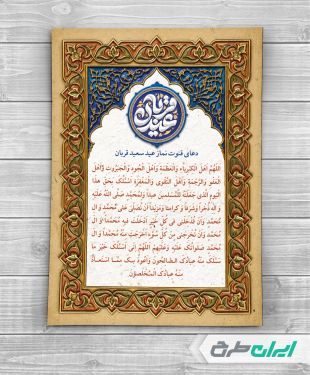 عید قربان
دعای قنوت نماز عید سعید قربان
اللهم اهل الکبریاء والعظمة واهل الجود والجبروت واهل
العفو والرحمة واهل التقوی والمغفرة اسئلک بحق هذا
الیوم الذی جعلته للمسلمین عیدا ولمحمد صلی الله علیه
و آله ذخرا وشرفا و کرامتا ومزیدا ان تصلی علی محمد و ال
محمد وان تدخلنی فی کل خیر ادخلت فیه محمدا و ال
محمد وان تخرجنی من کل سوء اخرجت منه محمدا و ال
محمد صلواتک علیه وعلیهم اللهم انی اسئلک خیر ما
سئلک منه عبادک الصالحون واعوذ بک مما استعاذ
منه عبادک المخلصون
ایران طرح